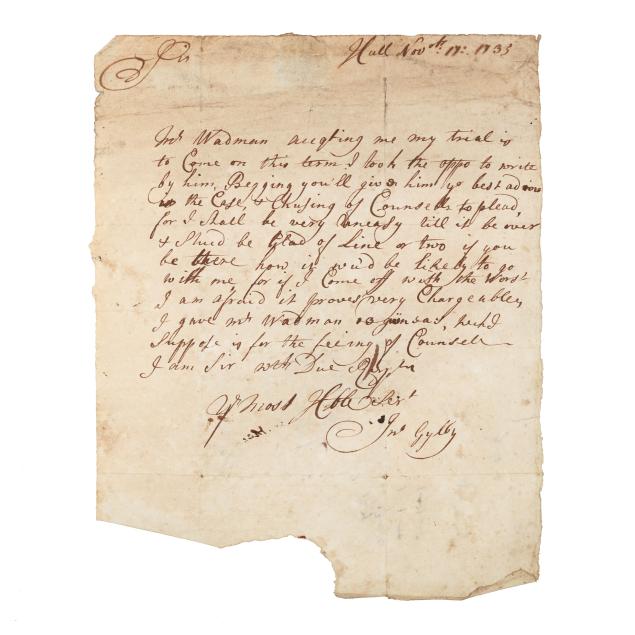 Sir Hull Novbr. 17: 1735
Mr Wadman acqting me my trial is
to Come on this term I took the oppo to write
by him, Begging you'll give him yo best advice
in the Case & Chusing of Counsells to plead,
for I shall be very uneasy till it be over
& Shud be Glad of Line or two if you
be there how it wu'd be likely to go
with me for if I Come off with the Worst
I am afraid it proves very Chargeable,
I gave Mr Wadman guineas, wch I
Suppose is for the feeing of Counsell
I am Sir with Due
Yr most Hble Servt
Jno Gylby